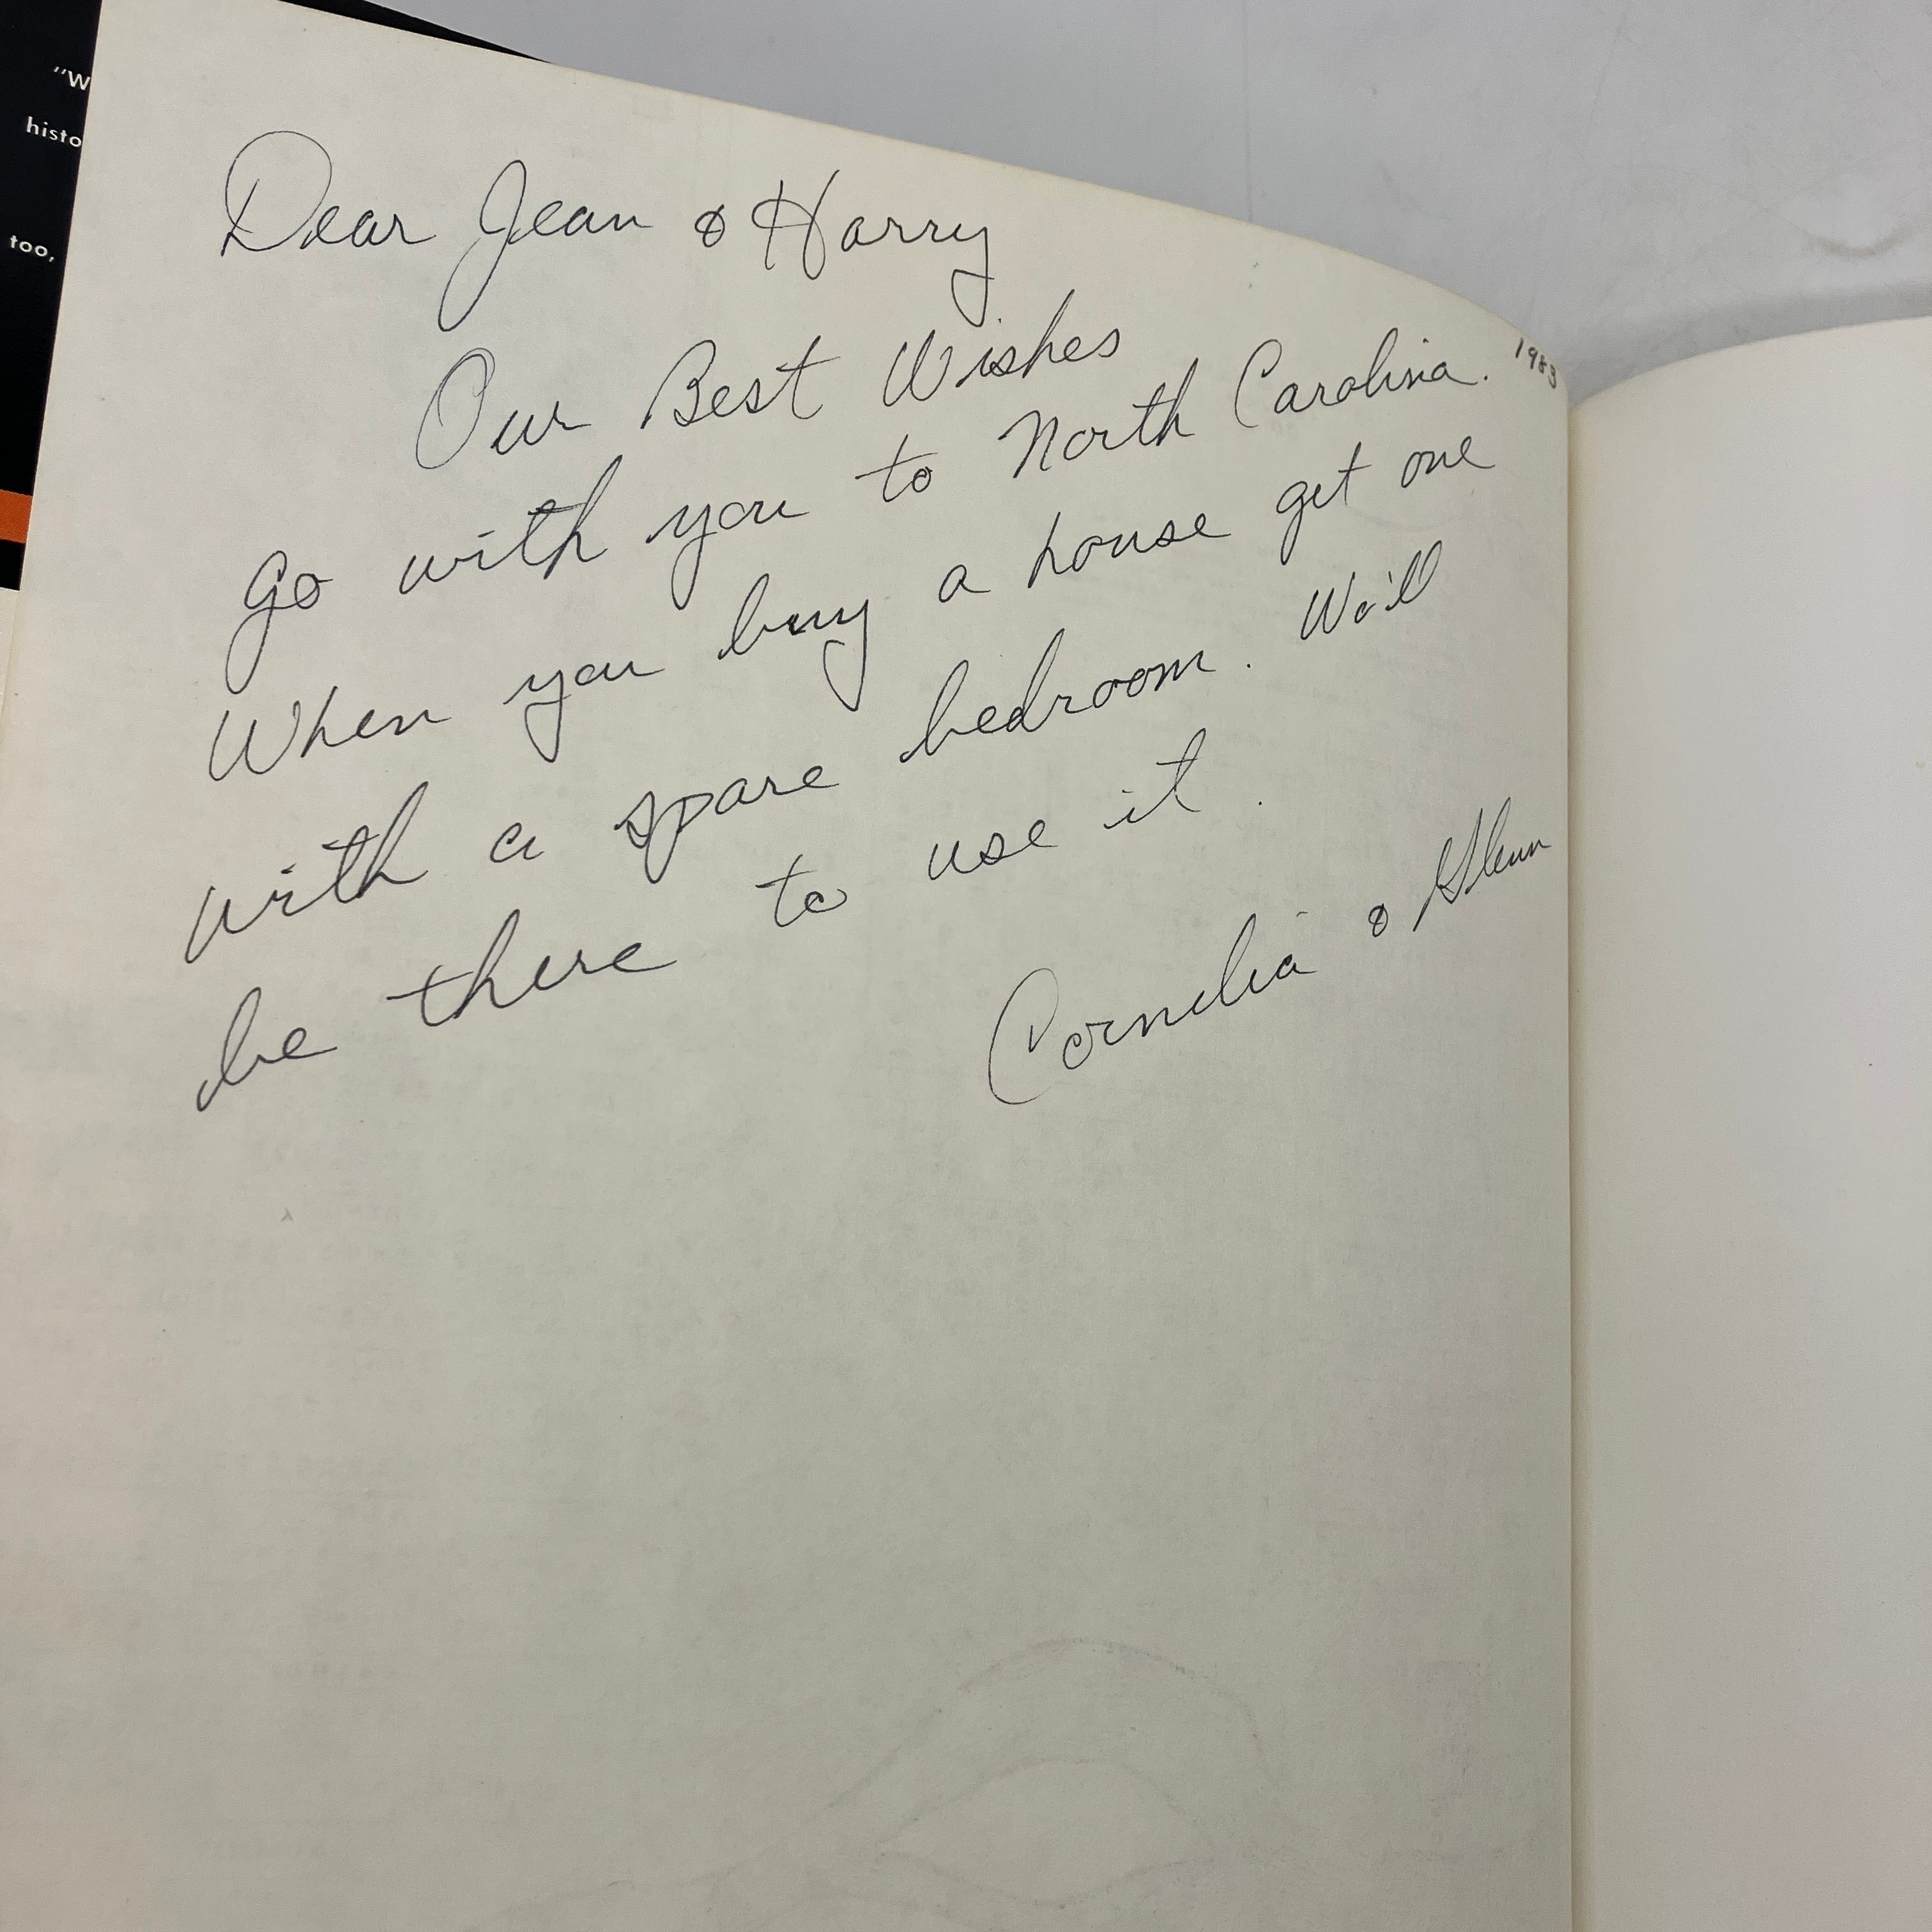 "W
histo
too,
Dear Jean & Harry
Our Best Wishes
go with you to North Carolina. 1983
When you buy a house get one
with a spare bedroom. We'll
be there to use it.
Cornelia & Glenn